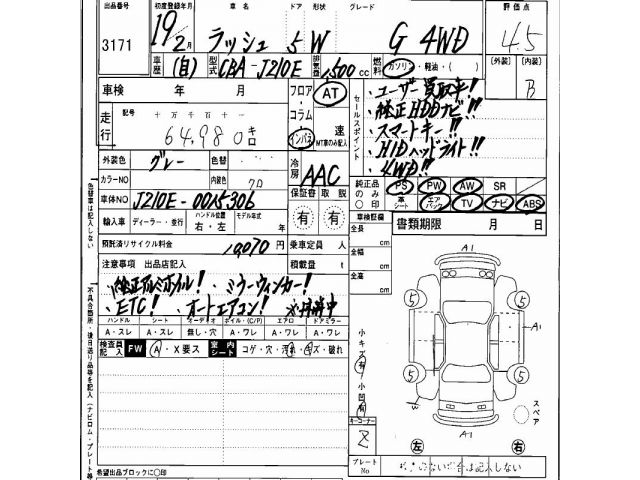 出品番号 初度登録年月 車名 ドア 形状 グレード 評価点
3171 19年2月 ラッシュ 5 W G 4WD 4.5
車歴 (自) 型式 CBA-J210E 排気量 1,500cc 燃料 ガソリン・軽油・( ) [外装] [内装] B
車検 年 月 フロアー・コラム・インパネ AT 速 MT車のみ記入
セールスポイント
・ユーザー買取車!
・純正HDDナビ!!
・スマートキー!!
・HIDヘッドライト!!
・4WD!!
走行 記号 十万千百十一
64,980キロ
外装色 グレー 色替 冷房 AAC
カラーNO 内装色 クロ 保証書 取説
純正品のみ○印 PS PW AW SR
革シート エアバック TV ナビ ABS
車体NO J210E-0015306 有 有
輸入車 ディーラー・並行 ハンドル位置 右・左 モデル年式
車輌検証欄 書類期限 月 日
預託済リサイクル料金 10,070円 乗車定員 人
全長 cm
全幅 cm
全高 cm
注意事項 出品店記入 積載量 t
・純正アルミホイル! ・ミラーウィンカー!
・ETC! ・オートエアコン!
ハンドル シート オーディオ ホイル・(C/P) エアロ ドアミラー
A・スレ A・スレ 無し・穴 A・ワレ A・ワレ A・ワレ
検査員記入 FW A・X要ス 室内シート コゲ・穴・汚れ・キズ・破れ
小キズ有 小凹有
キーコーナー
2
プレートNo
A1
5 5
A1
5 5
W
スペア
A1
左 右
は記入しない
色替車は記入しない
希望出品ブロックに○印